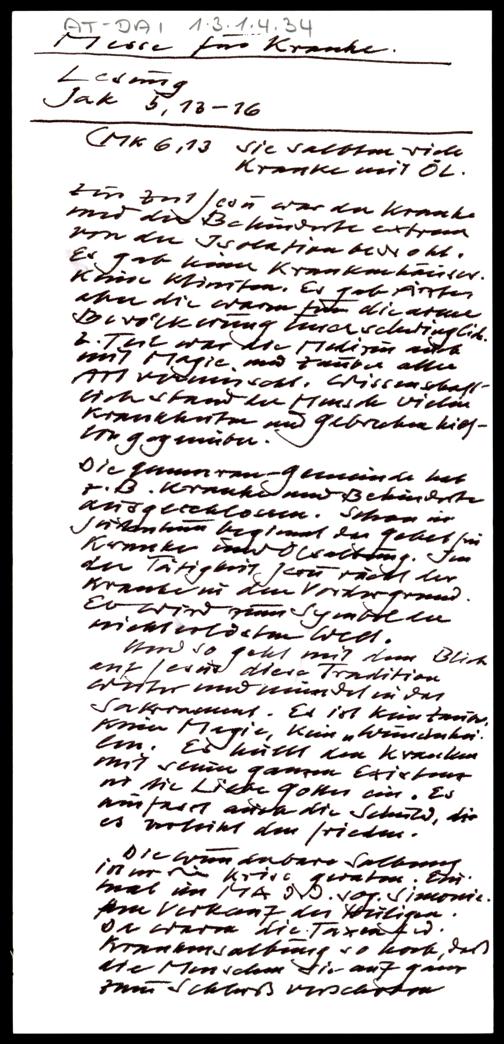 AT-DAI 1.3.1.4.34
Messe für Kranke.
Lesung
Jak 5, 13-16
(Mk 6,13 sie salbten viele
Kranke mit Öl.
Zur Zeit Jesu war der Kranke
und der Behinderte extrem
von der Isolation bedroht.
Es gab keine Krankenhäuser.
Keine Kliniken. Es gab Ärzte
aber die waren für die arme
Bevölkerung unerschwinglich.
z. Teil war die Medizin auch
mit Magie und Zauber aller
Art vermischt. Wissenschaft-
lich stand der Mensch vielen
Krankheiten und Gebrechen hilf-
los gegenüber.
Die Qumran-Gemeinde hat
z.B. Kranke und Behinderte
ausgeschlossen. Schon im
Judentum beginnt das Gebet für
Kranke und Ölsalbung. In
der Tätigkeit Jesu rückt der
Kranke in den Vordergrund.
Er wird zum Symbol der
nichterlösten Welt.
Und so geht mit dem Blick
auf Jesus diese Tradition
weiter und mündet in das
Sakrament. Es ist kein Zauber,
keine Magie, kein
Es hüllt den Kranken
mit seiner ganzen Existenz
in die Liebe Gottes ein. Es
umfasst auch die Schuld, die
es verleiht den Frieden.
Die wunderbare Salbung
ist in die Krise geraten. Ein-
mal im MA sog. Simonie.
Verkauf des Heiligen.
Da waren die Taxen
Krankensalbung so hoch, daß
die Menschen sie auf ganz
zum Schluß verschoben